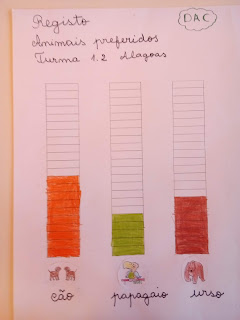 Registo
DAC
Animais preferidos
Turma 1.2 Alagoas
cão papagaio urso